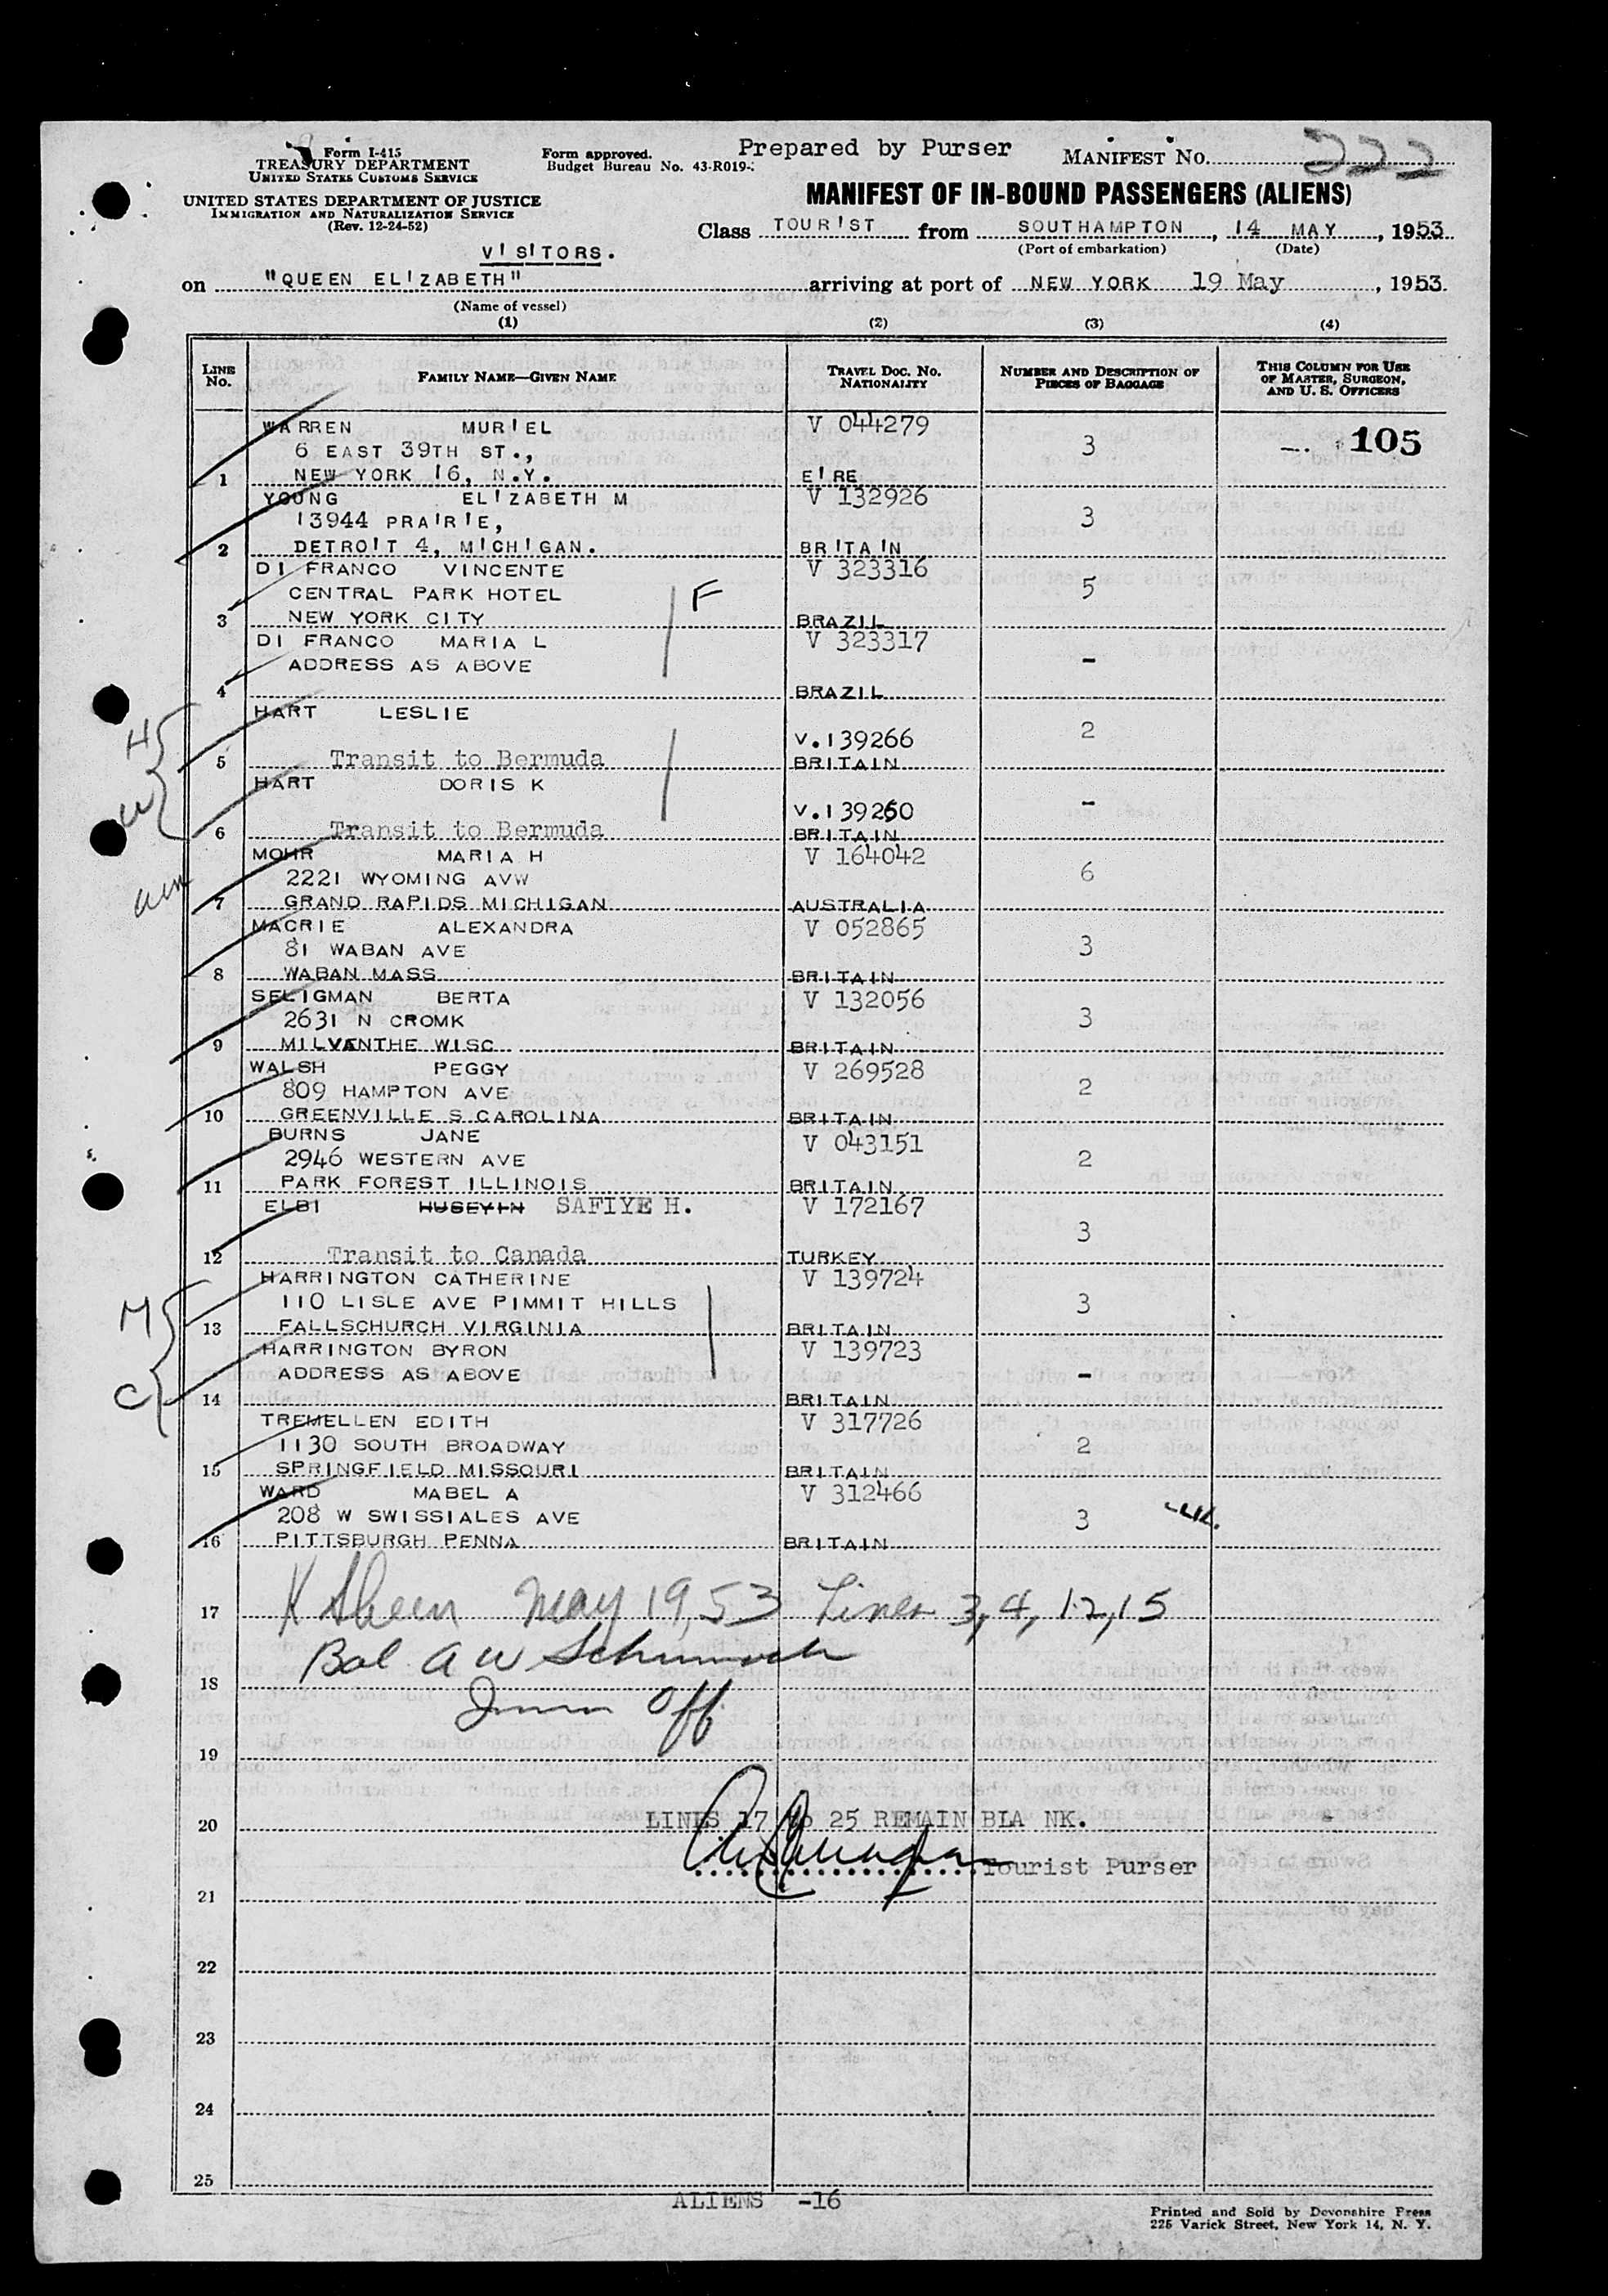 Form I-415
TREASURY DEPARTMENT
UNITED STATES CUSTOMS SERVICE
UNITED STATES DEPARTMENT OF JUSTICE
IMMIGRATION AND NATURALIZATION SERVICE
(Rev. 12-24-52)
Form approved.
Budget Bureau No. 43-R019-
Prepared by Purser
MANIFEST NO. 222
MANIFEST OF IN-BOUND PASSENGERS (ALIENS)
Class TOURIST from SOUTHAMPTON, 14 MAY, 1953
(Port of embarkation) (Date)
VISITORS.
on "QUEEN ELIZABETH" arriving at port of NEW YORK 19 May, 1953.
(Name of vessel)
(1) (2) (3) (4)
LINE NO. FAMILY NAME—GIVEN NAME TRAVEL DOC. NO. NATIONALITY NUMBER AND DESCRIPTION OF PIECES OF BAGGAGE THIS COLUMN FOR USE OF MASTER, SURGEON, AND U. S. OFFICERS
WARREN MURIEL V 044279
6 EAST 39TH ST., 3 105
1 NEW YORK 16, N.Y. EIRE
YOUNG ELIZABETH M V 132926
13944 PRAIRIE, 3
2 DETROIT 4, MICHIGAN. BRITAIN
DI FRANCO VINCENTE V 323316
CENTRAL PARK HOTEL F 5
3 NEW YORK CITY BRAZIL
DI FRANCO MARIA L V 323317
ADDRESS AS ABOVE -
4 BRAZIL
HART LESLIE
V.139266 2
5 Transit to Bermuda BRITAIN
HART DORIS K
V.139260 -
6 Transit to Bermuda BRITAIN
MOHR MARIA H V 164042
2221 WYOMING AVW 6
7 GRAND RAPIDS MICHIGAN AUSTRALIA
MACRIE ALEXANDRA V 052865
81 WABAN AVE 3
8 WABAN MASS BRITAIN
SELIGMAN BERTA V 132056
2631 N CROMK 3
9 MILVANTHE WISC BRITAIN
WALSH PEGGY V 269528
809 HAMPTON AVE 2
10 GREENVILLE S CAROLINA BRITAIN
BURNS JANE V 043151
2946 WESTERN AVE 2
11 PARK FOREST ILLINOIS BRITAIN
ELBI HUSEYIN SAFIYE H. V 172167
3
12 Transit to Canada TURKEY
HARRINGTON CATHERINE V 139724
110 LISLE AVE PIMMIT HILLS 3
13 FALLSCHURCH VIRGINIA BRITAIN
HARRINGTON BYRON V 139723
ADDRESS AS ABOVE -
14 BRITAIN
TREMELLEN EDITH V 317726
1130 SOUTH BROADWAY 2
15 SPRINGFIELD MISSOURI BRITAIN
WARD MABEL A V 312466
208 W SWISSIALES AVE 3
16 PITTSBURGH PENNA BRITAIN
17 K Sheen May 19, 53 Lines 3, 4, 12, 15
Bal A W
18
Imm Off
19
20 LINES 17 to 25 REMAIN BLA NK.
Tourist Purser
21
22
23
24
25
ALIENS -16
Printed and Sold by Devonshire Press
225 Varick Street, New York 14, N. Y.